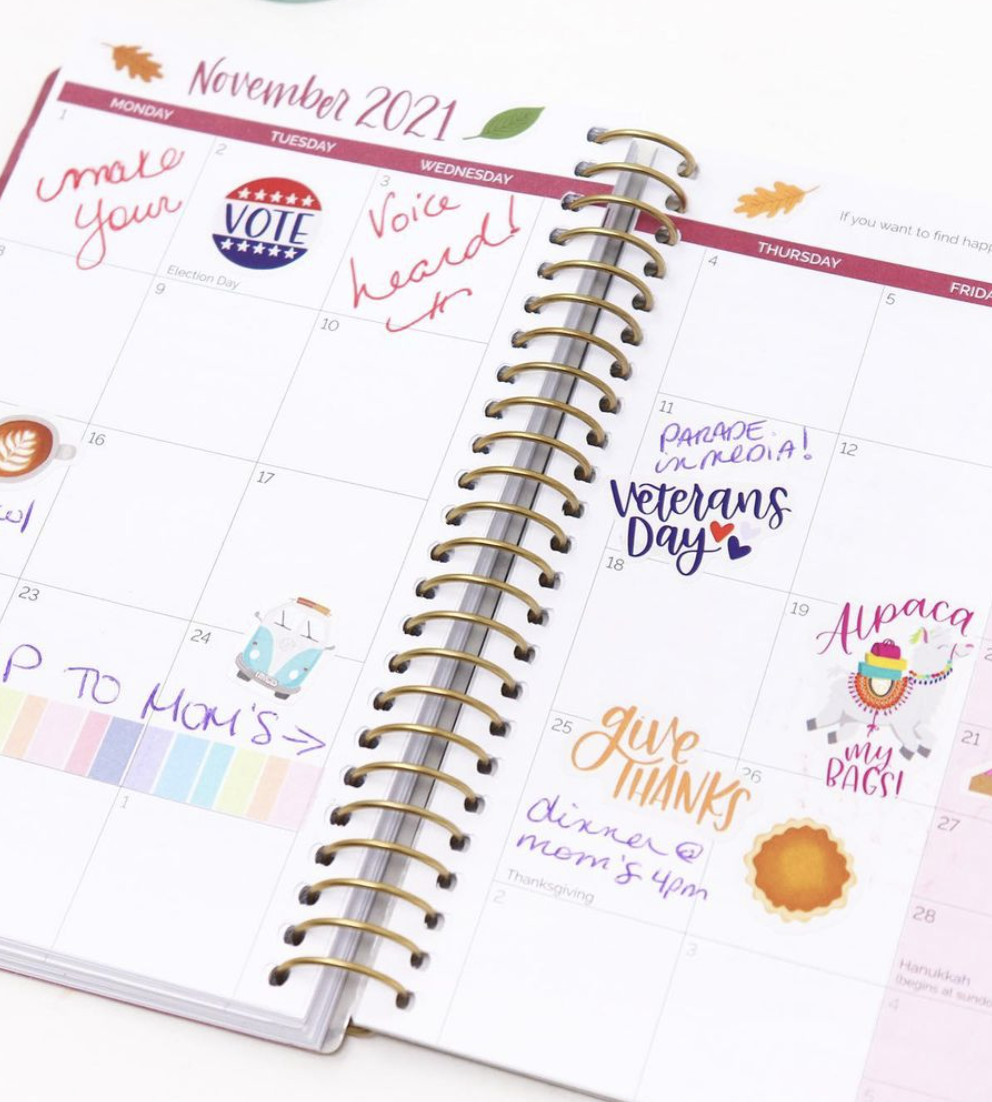 November 2021
MONDAY
TUESDAY
WEDNESDAY
1
make
your
2
VOTE
Election Day
3
Voice
heard!
9
10
16
17
23
24
P TO MOM'S →
1
If you want to find
THURSDAY
4
5
11
PARADE
in media!
Veterans
Day
12
18
19
Alpaca
my
BAGS!
21
25
give
THANKS
dinner @
mom's 4pm
Thanksgiving
26
27
28
Hanukkah
2
3
4
5